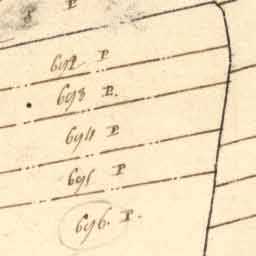 P
692 P
693 P.
694 P
695 P
696. P.